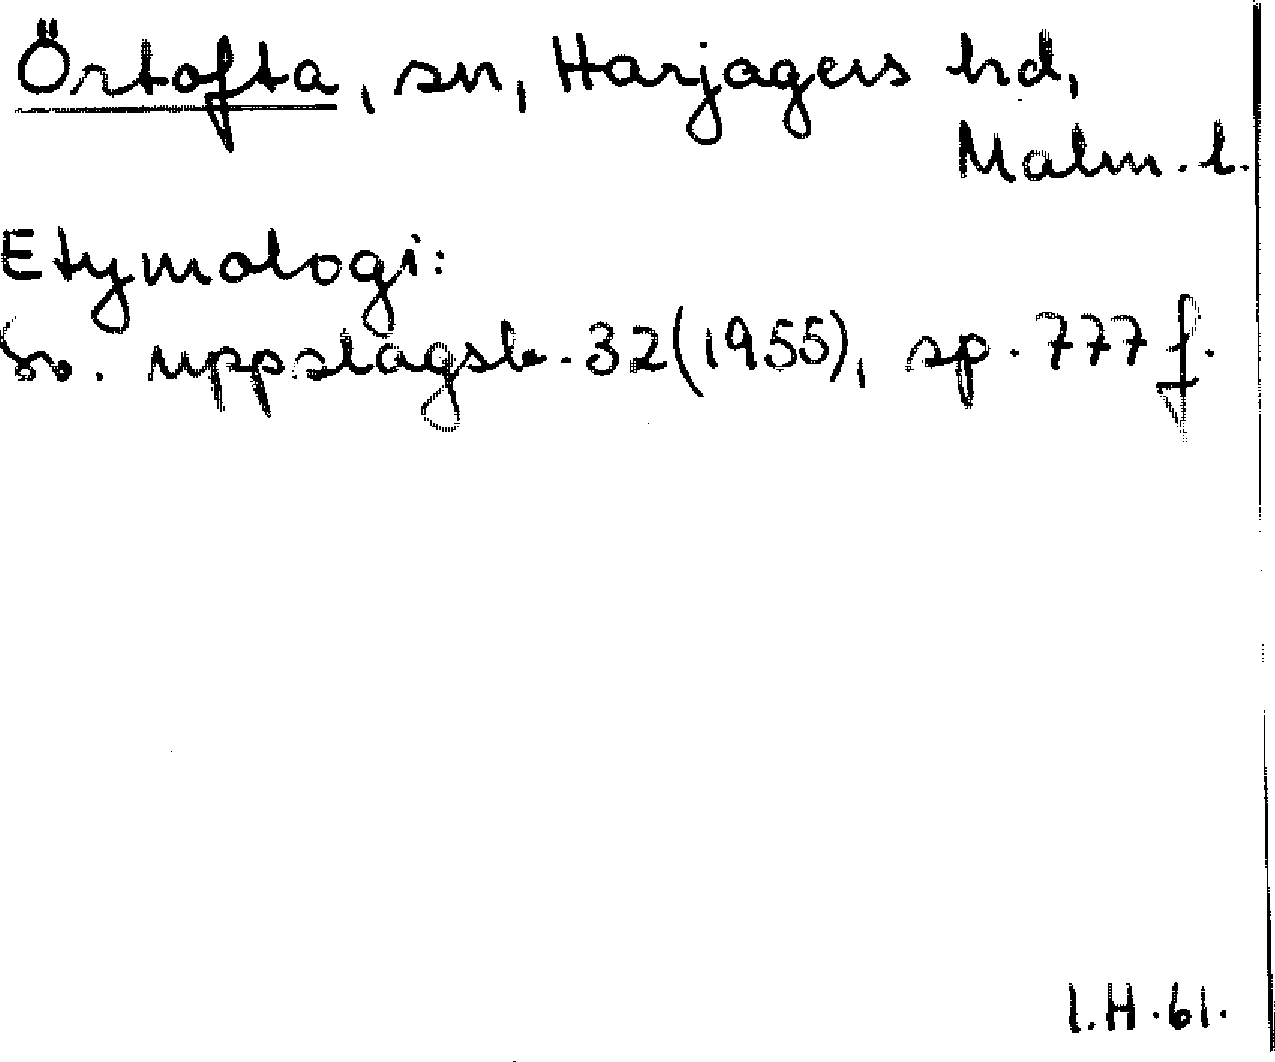 Örtofta, sn, Harjagers hd,
Malm. l.
Etymologi:
Sv. uppslagsb. 32(1955), sp. 777 f.
I.H.61.